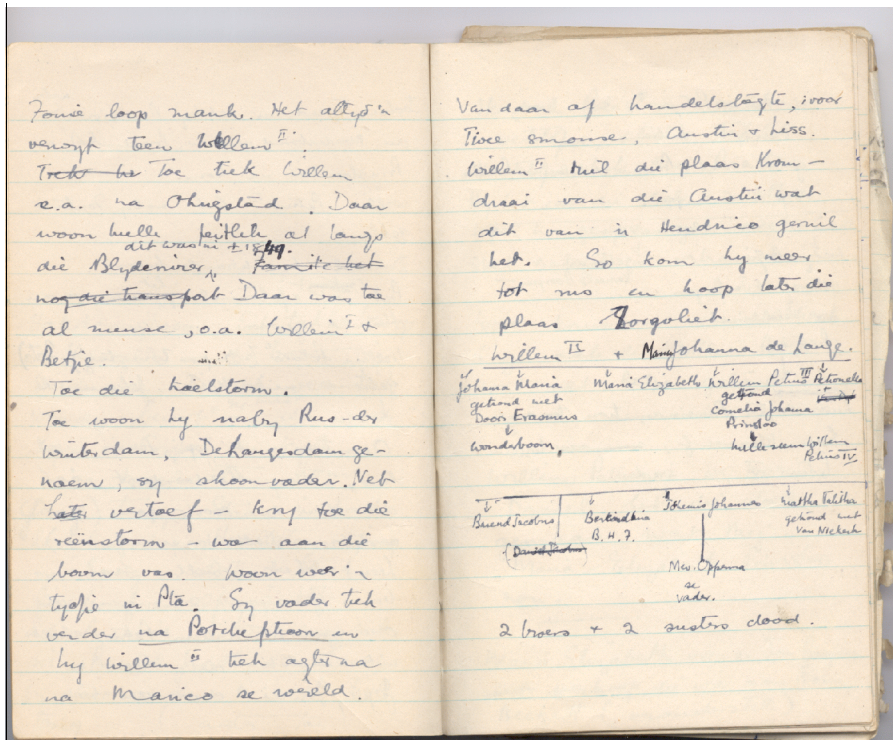 Fouie loop mank. Het altyd 'n
verwyt teen Willem II.
Trek he Toe trek Willem
e.a. na Ohrigstad. Daar
woon hulle feitlik al langs
dit was in ± 1849.
die Blyderivier, Familie het
nog die transport Daar was toe
al mense, o.a. Willem I +
Betjie.
Toe die haelstorm.
Toe woon hy naby Rus-der
winterdam, Delangesdam ge-
naem, sy skoonvader. Net
later vertoef - kry toe die
reënstorm - wa aan die
boom vas. Woon weer 'n
tydjie in Pta. Sy vader trek
verder na Potchefstroom en
hy Willem II trek agterna
na Marico se wêreld.
Van daar af handelstogte, voor
Twee smouse, Austin & Liss.
Willem II ruil die plaas Krom-
draai van die Austin wat
dit van 'n Hendrico geruil
het. So kom hy meer
tot rus en koop later die
plaas Sorgvliet.
Willem II + Maria Johanna de Lange.
Johana Maria
getroud met
Doors Erasmus
Wonderboom.
Maria Elizabeth
Willem Petrus III
getroud
Cornelia Johana
Prinsloo
Willem
Petrus IV
Petronella
Barend Jacobus
B. H. J.
Johannes
Martha Talitha
getroud met
Van Niekerk
Mev. Opperma
se
vader.
2 broers + 2 susters dood.